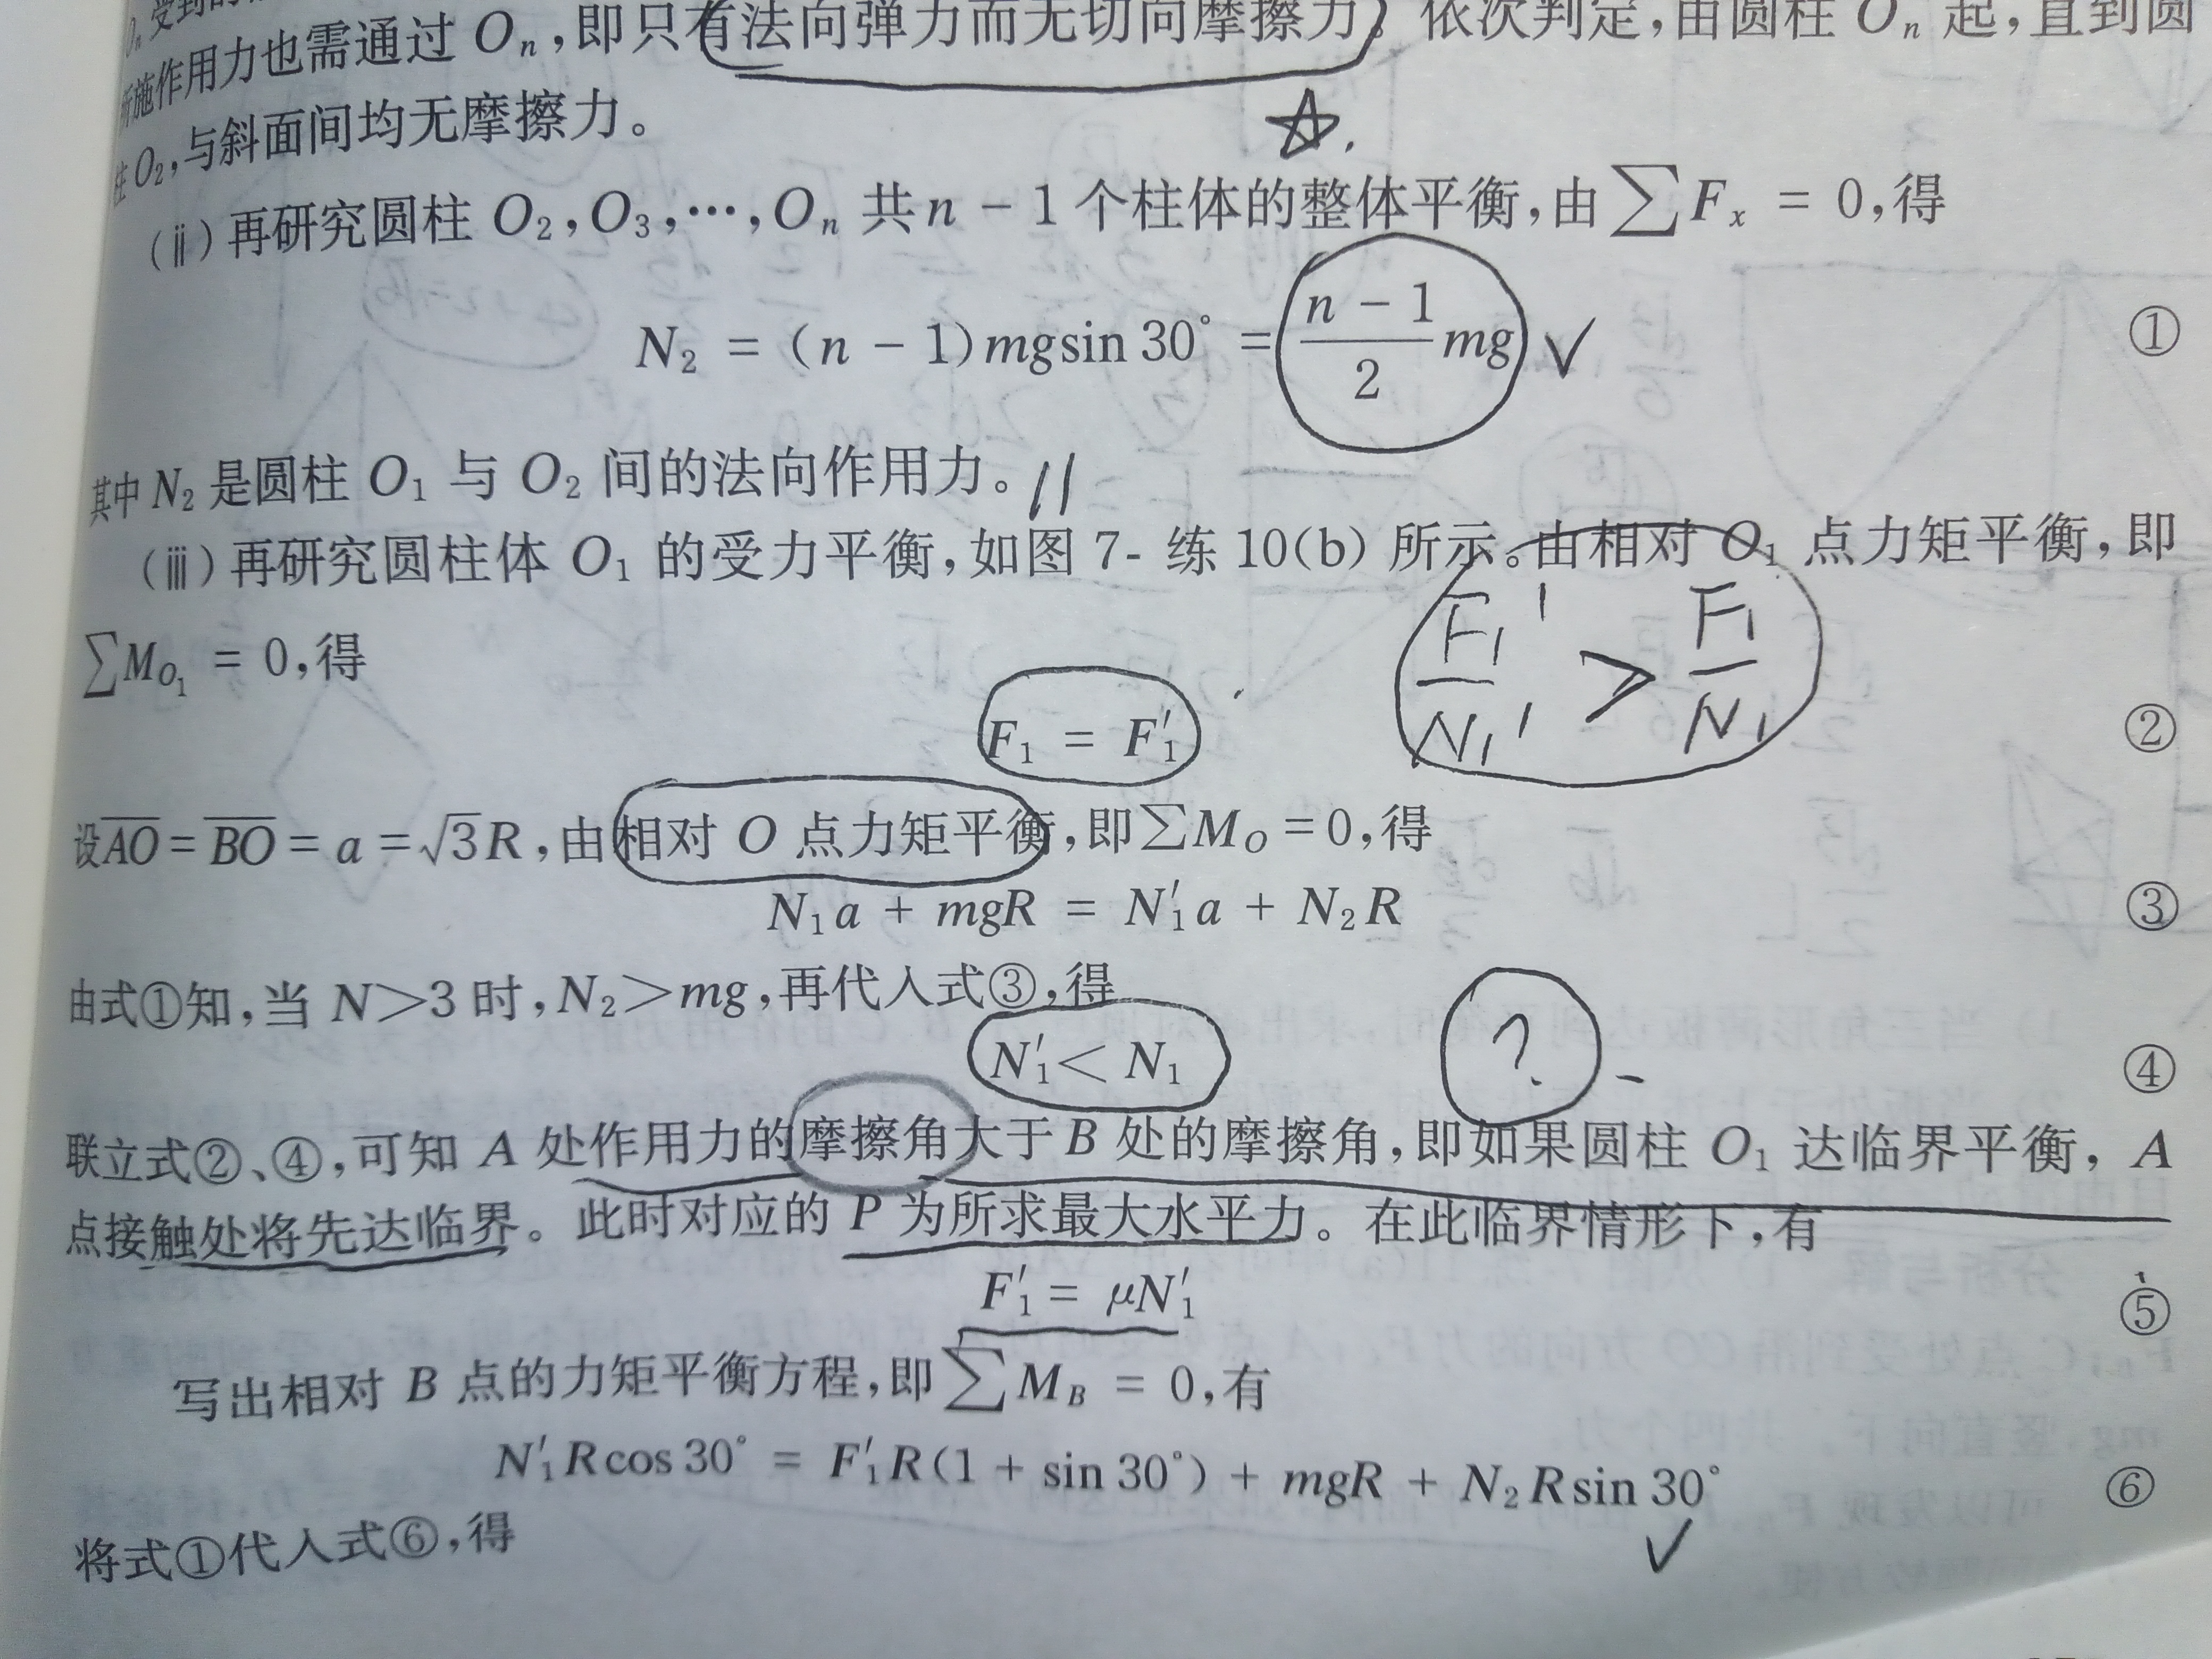 O_n 受到的
所施作用力也需通过 O_n,即只有法向弹力而无切向摩擦力。依次判定,由圆柱 O_n 起,直到圆
柱 O_2,与斜面间均无摩擦力。
(ⅱ)再研究圆柱 O_2,O_3,…,O_n 共 n − 1 个柱体的整体平衡,由 ∑F_x = 0,得
N_2 = (n − 1)mgsin 30° = \frac{n − 1}{2}mg ✓ ①
其中 N_2 是圆柱 O_1 与 O_2 间的法向作用力。
(ⅲ)再研究圆柱体 O_1 的受力平衡,如图 7- 练 10(b) 所示。由相对 O_1 点力矩平衡,即
∑M_{O_1} = 0,得
\frac{F_1'}{N_1'} > \frac{F_1}{N_1}
F_1 = F_1' ②
设 \overline{AO} = \overline{BO} = a = √3R,由相对 O 点力矩平衡,即∑M_O = 0,得
N_1a + mgR = N_1'a + N_2R ③
由式①知,当 N>3 时,N_2>mg,再代入式③,得
N_1'< N_1 ? ④
联立式②、④,可知 A 处作用力的摩擦角大于 B 处的摩擦角,即如果圆柱 O_1 达临界平衡, A
点接触处将先达临界。此时对应的 P 为所求最大水平力。在此临界情形下,有
F_1' = μN_1' ⑤
写出相对 B 点的力矩平衡方程,即 ∑M_B = 0,有
N_1'Rcos 30° = F_1'R(1 + sin 30°) + mgR + N_2Rsin 30° ⑥
✓
将式①代入式⑥,得